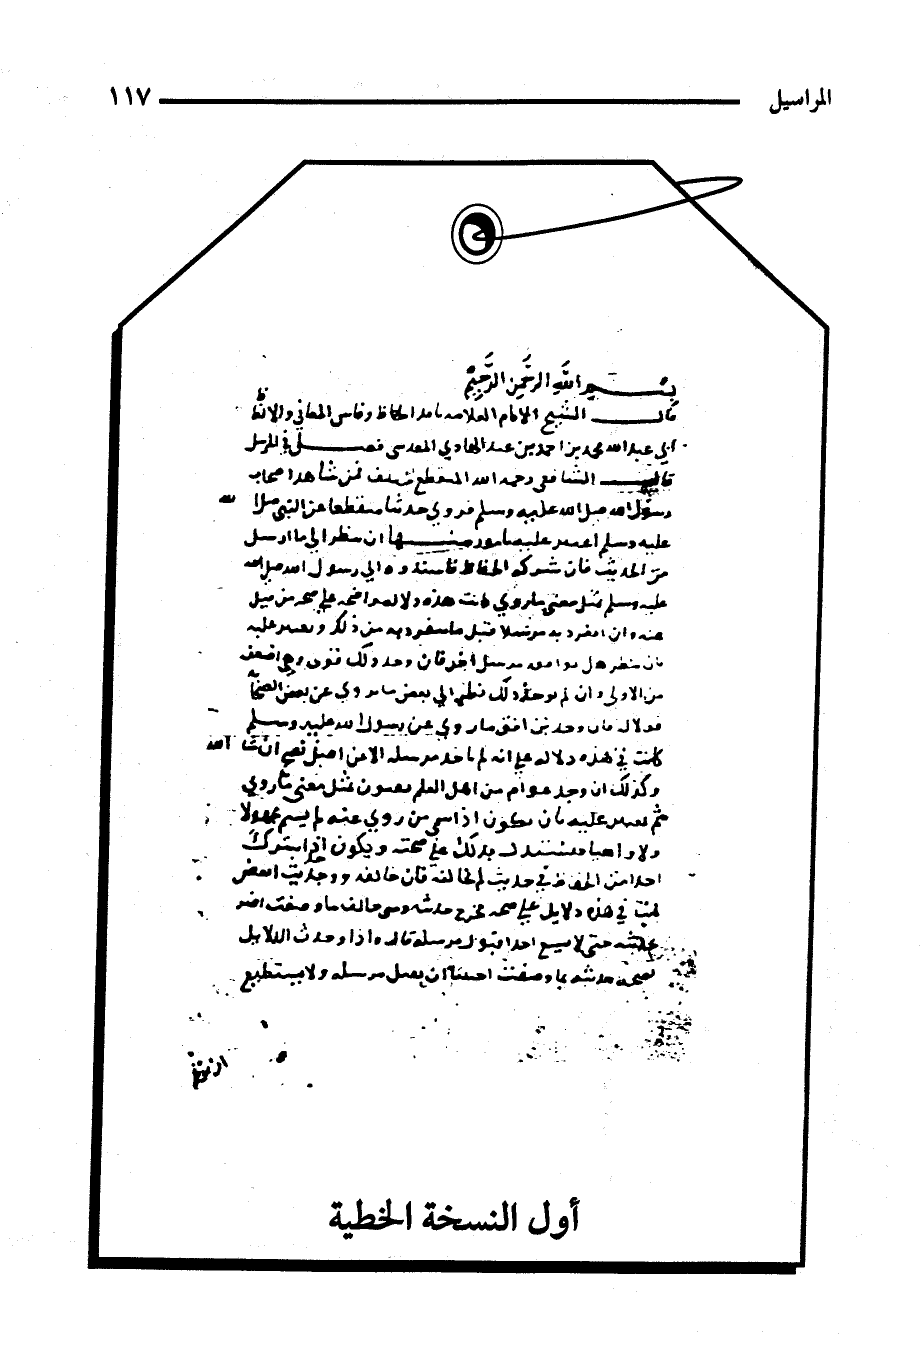 المراسيل ١١٧
بسم الله الرحمن الرحيم
قال الشيخ الامام العلامه الحافظ المعاني والالفاظ
ابي عبد الله محمد بن احمد بن عبد الهادي المقدسي فصل في المرسل
قال الشافعي رحمه الله المنقطع مختلف فمن شاهد اصحاب
رسول الله صلى الله عليه وسلم فروي حديثا منقطعا عن النبي صلى الله
عليه وسلم اعتبر عليه بامور منها ان ينظر الي ما ارسل
من الحديث فان شركه الحفاظ فاسندوه الي رسول الله صلى الله
عليه وسلم بمثل معني ما روي كانت هذه دلاله واضحه علي صحه من قبل
عنه وان انفرد به مرسلا قبل ما ينفرد به من ذلك ويعتبر عليه
بان ينظر هل يوافقه مرسل اخر فان وجد ذلك قوي وهي اضعف
من الاولي وان لم يوجد ذلك نظر الي بعض ما يروي عن بعض الصحابة
قولا له فان وجد بن افق ما روي عن رسول الله عليه وسلم
كانت في هذه دلاله علي انه لم ياخذ مرسله الا عن اصل يصح ان شا الله
وكذلك ان وجد عوام من اهل العلم يفتون بمثل معني ما روي
ثم يعتبر عليه بان يكون اذا سمي من روي عنه لم يسم مجهولا
ولا واهيا فيستدل بذلك علي صحته ويكون اذا شرك
احدا من الحفاظ في حديث لم يخالفه فان خالفه ووجد حديثه انقص
كانت في هذه دلايل علي صحه مخرج حديثه ومتي خالف ما وصفت اضر
بحديثه حتي لا يسع احدا قبول مرسله قال واذا وجدت الدلايل
بصحه حديثه بما وصفت احببنا ان يقبل مرسله ولا يستطيع
ان نزعم
أول النسخة الخطية